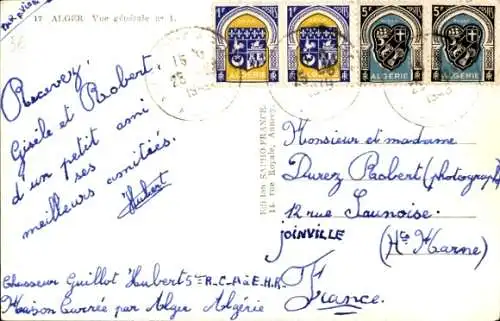 PAR AVION
17 ALGER Vue générale n° 1.
Recevez,
Gisèle et Robert,
d'un petit ami
ses
meilleurs amitiés.
Hubert
Chasseur Guillot Hubert 5me R.C.A. à E.H.R.
Maison Carrée par Alger Algérie
Edition SAPHO-FRANCE
14, rue Royale, Annecy
1F 1F 5F 5F
ALGÉRIE ALGÉRIE ALGÉRIE ALGÉRIE
Monsieur et madame
Durez Robert (photographe
12 rue Launoise
JOINVILLE
(Hte Marne)
France.